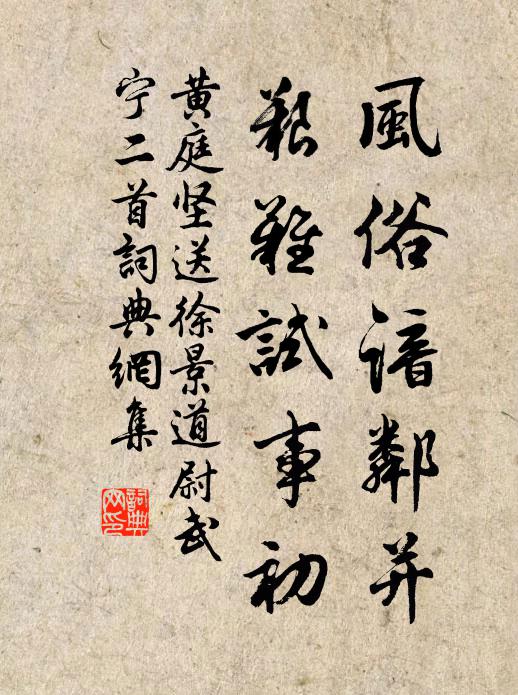 風俗諳鄰并
艱難試事初
黄庭坚送徐景道尉武
宁二首詞典網集
詞典网印